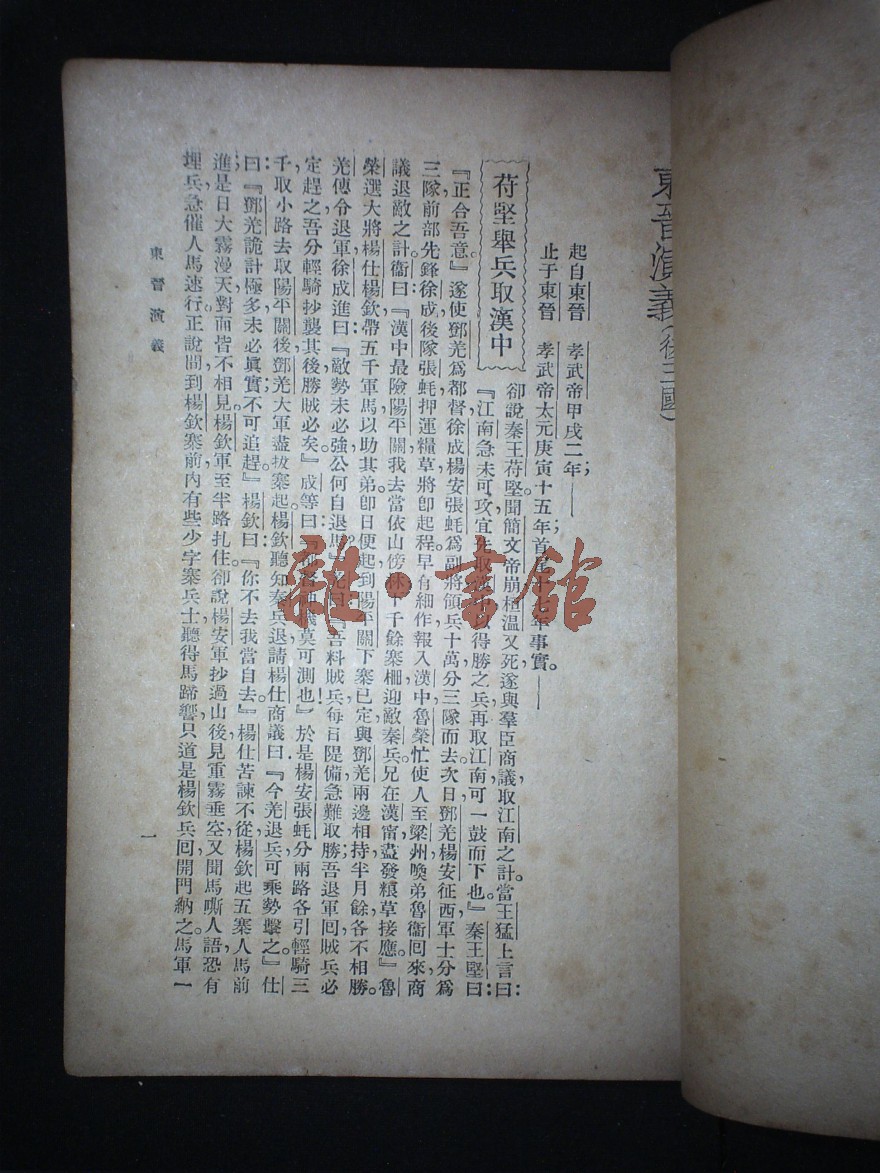 東晉演義(後三國)
起自東晉 孝武帝甲戌二年
止于東晉 孝武帝太元庚寅十五年首尾十七年事實。
苻堅舉兵取漢中
卻說秦王苻堅。聞簡文帝崩桓溫又死遂與羣臣商議取江南之計。當王猛上言曰:
『江南急未可攻宜先取漢得勝之兵再取江南可一鼓而下也。』秦王堅曰:
『正合吾意。』遂使鄧羌爲都督徐成楊安張蚝爲副將領兵十萬分三隊而去。次日鄧羌楊安征西軍士分爲
三隊前部先鋒徐成後隊張蚝押運糧草將卽起程。早有細作報入漢中魯榮忙使人至梁州喚弟魯衞囘來商
議退敵之計。衞曰:『漢中最險陽平關我去當依山傍林下千餘寨柵迎敵秦兵兄在漢甯盡發糧草接應。』魯
榮選大將楊仕楊欽帶五千軍馬以助其弟卽日便起到陽平關下寨已定與鄧羌兩邊相持半月餘各不相勝。
羌傳令退軍徐成進曰:『敵勢未必強公何自退焉?』羌曰:『吾料賊兵每日隄備急難取勝吾退軍囘賊兵必
定趕之吾分輕騎抄襲其後勝賊必矣。』成等曰:『都督神機莫可測也!』於是楊安張蚝分兩路各引輕騎三
千取小路去取陽平關後鄧羌大軍盡拔寨起。楊欽聽知秦兵退請楊仕商議曰:『今羌退兵可乘勢擊之。』仕
曰:『鄧羌詭計極多未必眞實不可追趕。』楊欽曰:『你不去我當自去。』楊仕苦諫不從楊欽起五寨人馬前
進是日大霧漫天對面皆不相見楊欽軍至半路扎住卻說楊安軍抄過山後見重霧垂空又聞馬嘶人語恐有
埋兵急催人馬速行正說間到楊欽寨前內有些少字寨兵士聽得馬蹄響只道是楊欽兵囘開門納之馬軍一
東晉演義
一
雜·書館